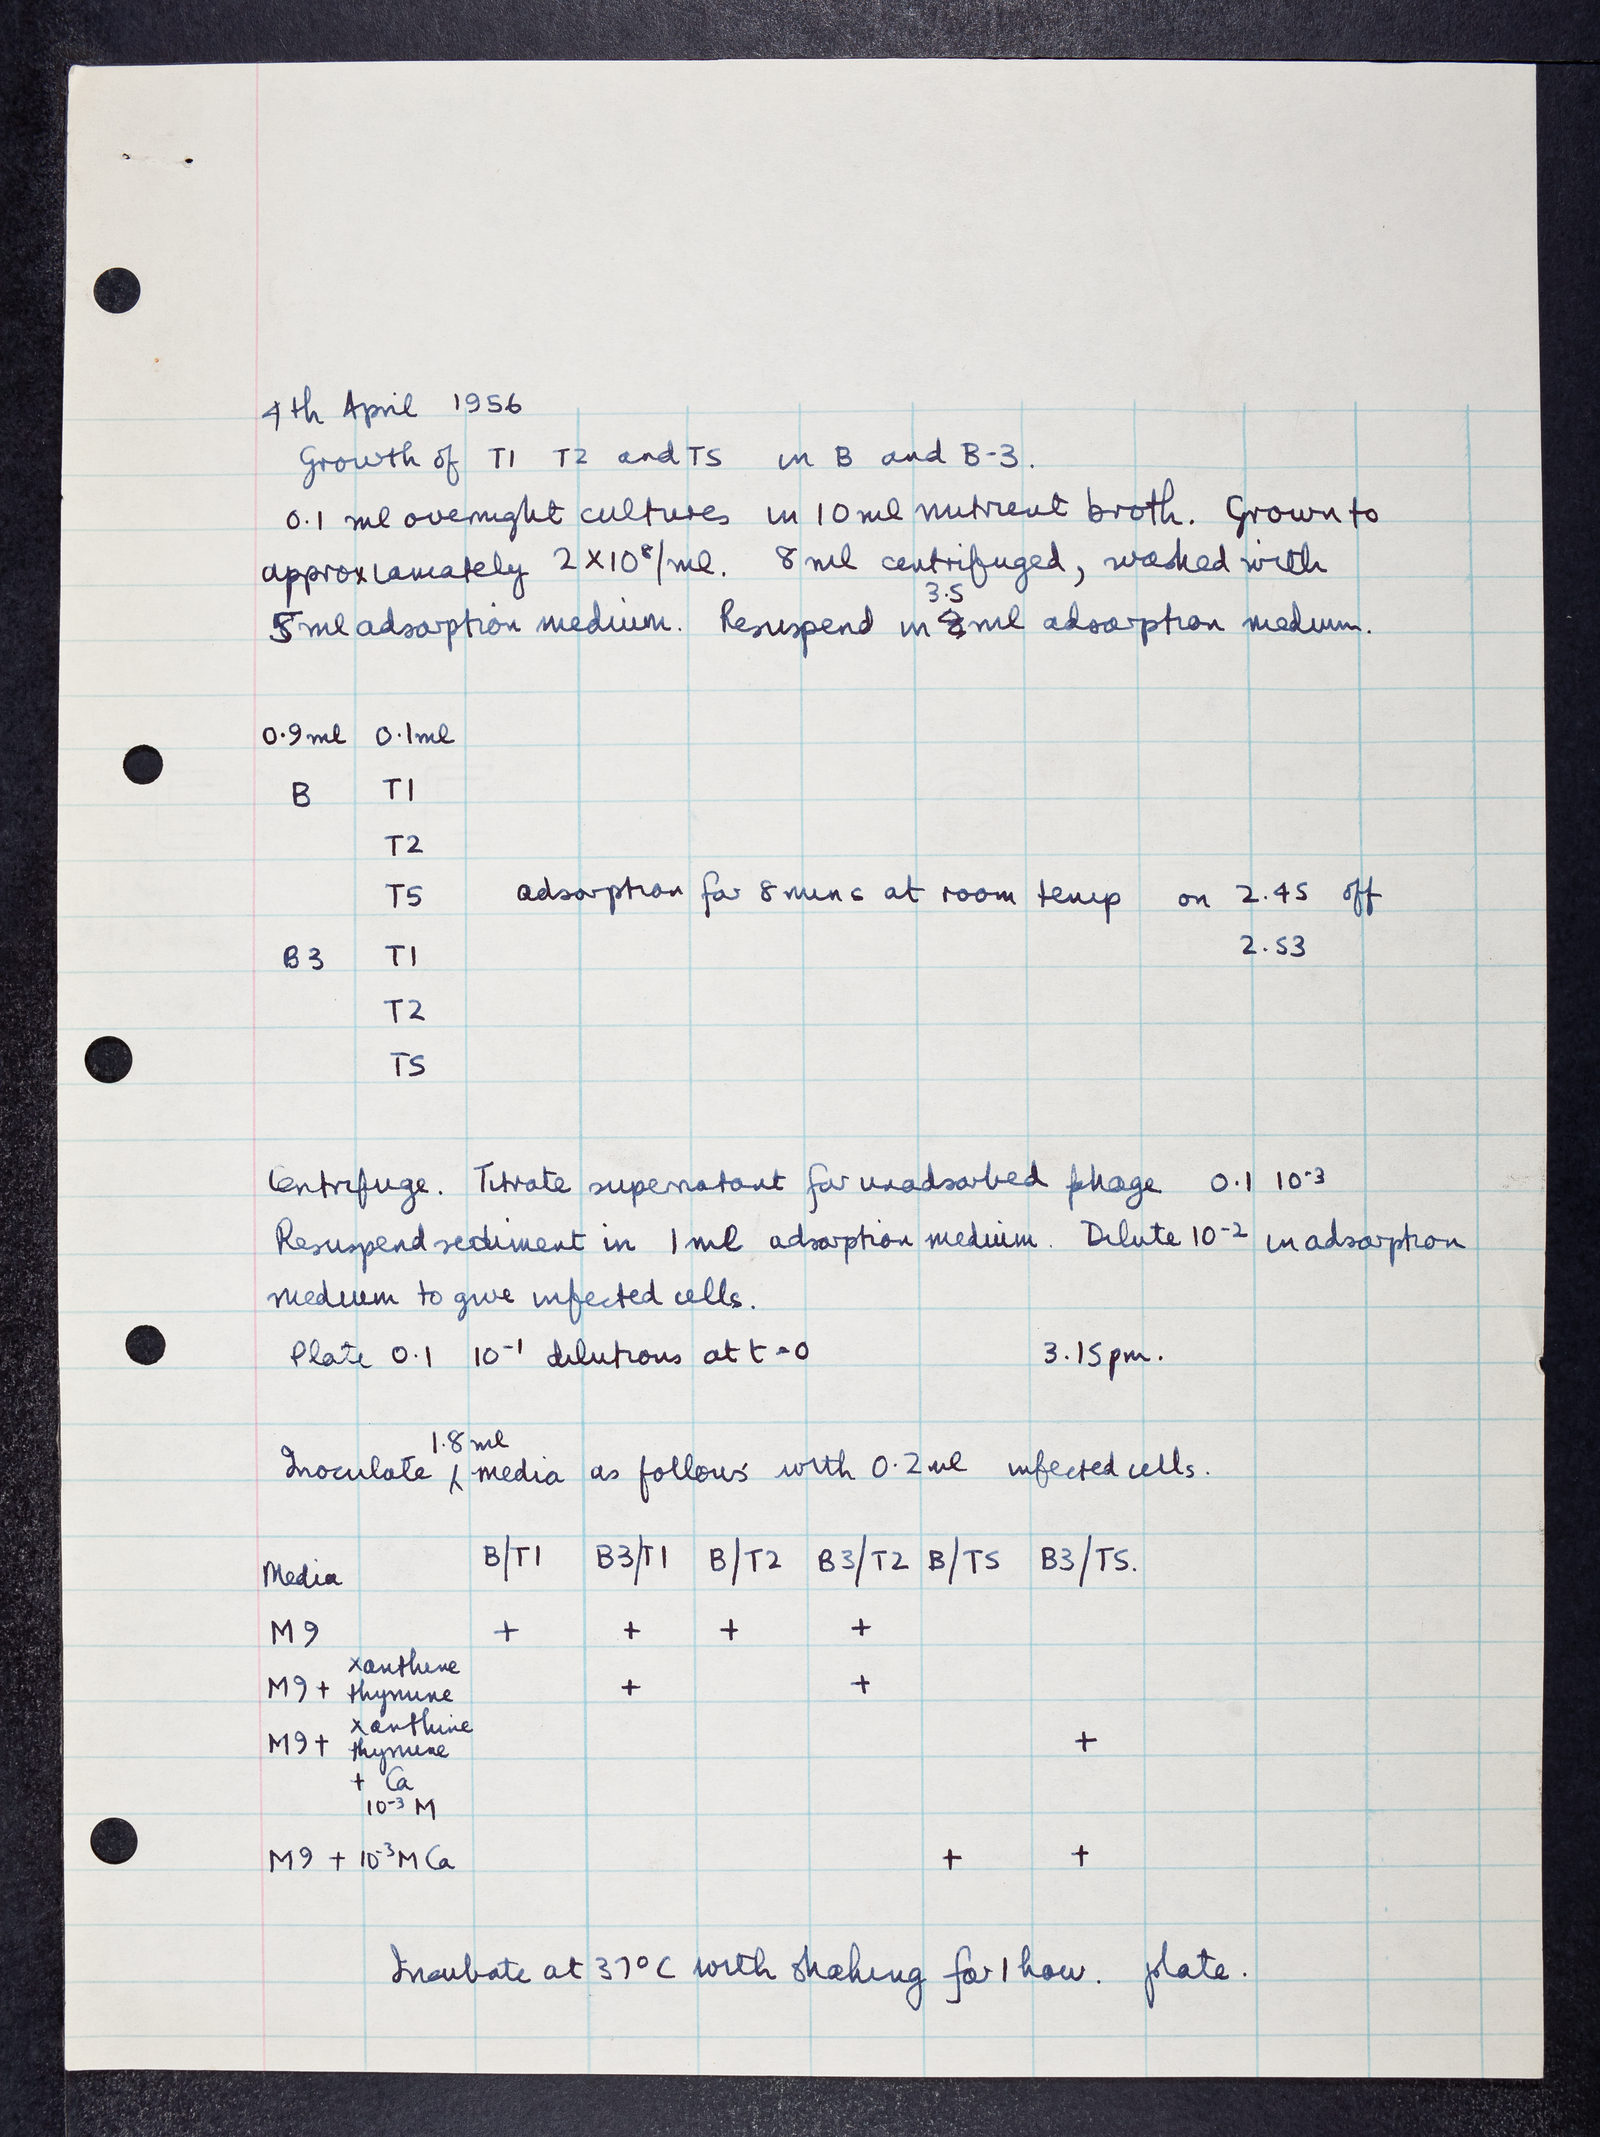 4th April 1956
Growth of T1 T2 and T5 in B and B-3.
0.1 ml overnight cultures in 10 ml nutrient broth. Grown to
approxiamately 2 × 10⁸/ml. 8 ml centrifuged, washed with
3.5
5 ml adsorption medium. Resuspend in ml adsorption medium.
0.9 ml 0.1 ml
B T1
T2
T5 adsorption for 8 mins at room temp on 2.45 off
B3 T1 2.53
T2
T5
Centrifuge. Titrate supernatant for unadsorbed phage 0.1 10⁻³
Resuspend sediment in 1 ml adsorption medium. Dilute 10⁻² in adsorption
medium to give infected cells.
Plate 0.1 10⁻¹ dilutions at t = 0 3.15 pm.
1.8 ml
Inoculate media as follows with 0.2 ml infected cells.
Media B/T1 B3/T1 B/T2 B3/T2 B/T5 B3/T5.
M9 + + + +
xanthine
M9 + thymine + +
xanthine
M9 + thymine +
+ Ca
10⁻³ M
M9 + 10⁻³ M Ca + +
Incubate at 37°C with shaking for 1 hour. plate.